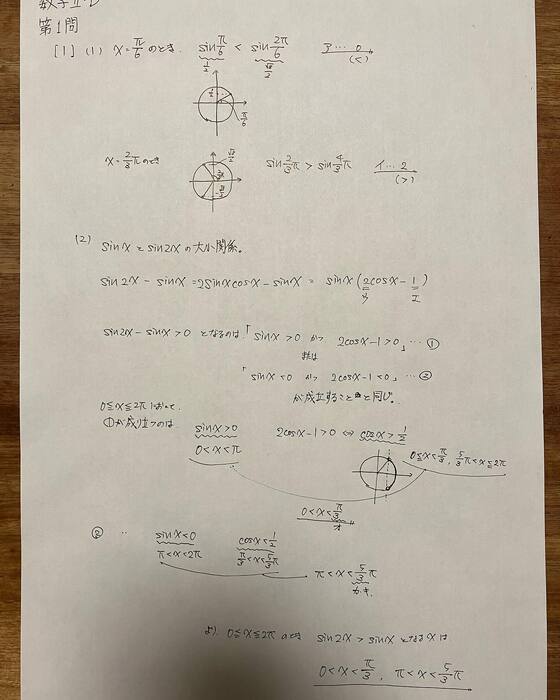 数学Ⅱ·B
第1問
[1] (1) x=π/6 のとき、 sin π/6 < sin 2π/6 ア… 0
1/2 √3/2 (<)
1/2
π/6
x=2/3π のとき √3/2 sin 2/3π > sin 4/3π イ… 2
(>)
(2) sinx と sin2x の大小関係。
sin2x - sinx = 2sinxcosx - sinx = sinx(2cosx - 1)
ウ エ
sin2x - sinx > 0 となるのは「sinx > 0 かつ 2cosx - 1 > 0」… ①
または
「sinx < 0 かつ 2cosx - 1 < 0」… ②
が成立することと同じ。
0≦x≦2π において、
①が成り立つのは sinx > 0 2cosx - 1 > 0 ⇔ cosx > 1/2
0 < x < π 0≦x<π/3, 5/3π<x≦2π
0 < x < π/3
オ
② … sinx < 0 cosx < 1/2
π < x < 2π π/3 < x < 5/3π π < x < 5/3π
カ、キ
より、0≦x≦2π のとき sin2x > sinx となる x は
0 < x < π/3 , π < x < 5/3π